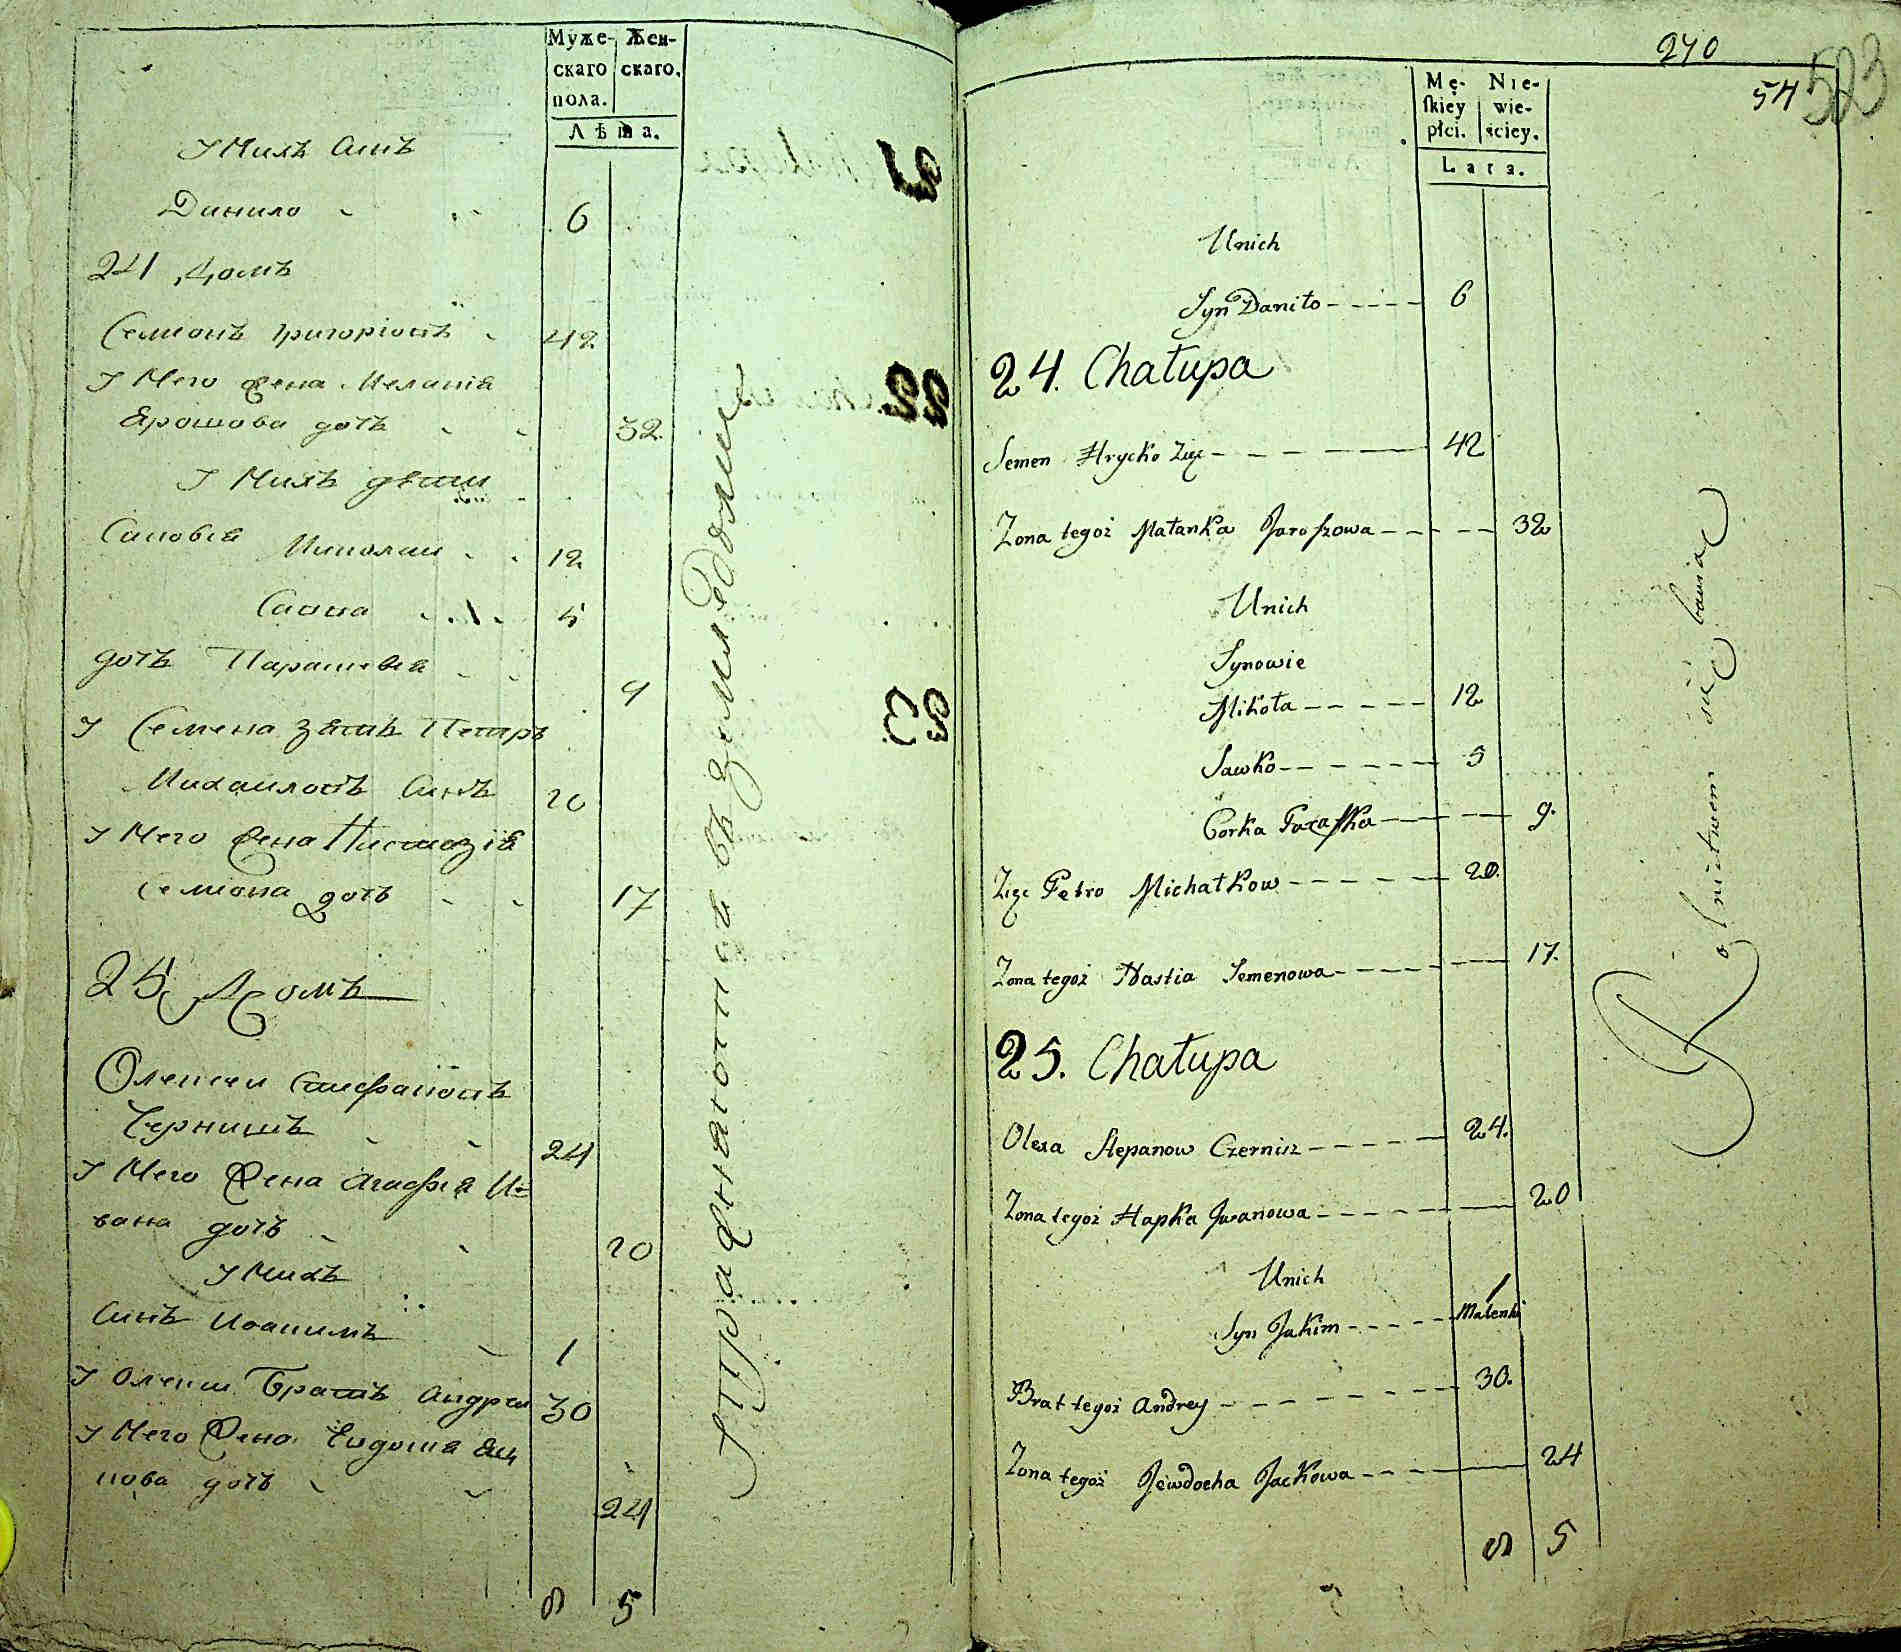 Муже-
скаго
пола.
Жен-
скаго.
Лѣта.
У Нихъ Синъ
Данило 6
24 Домъ
Семионъ Григоріовъ 42
У Него Жена Меланія
Ярошова дочь 32
У Нихъ дѣти
Синовья Николай 12
Савва 5
дочь Парашевія 9
У Семена зять Петръ
Михаиловъ Синъ 20
У Него Жена Настазія
Семиона дочь 17
25 Домъ
Олексей Стефановъ
Чернишъ 24
У Него Жена Агафія И-
вана дочь 20
У Нихъ
Синъ Иоакимъ 1
У Олекси Братъ Андрей 30
У Него Жена Евдокия Яц
кова дочь 24
8 5
Упражняются въ земледоліи
21
22
23
270
54 523
Mę-
skiey
płci.
Nie-
wie-
ściey.
Lata.
Unich
Syn Daniło 6
24. Chałupa
Semen Hrycko Zięć 42
Zona tegoż Małanka Jaroszowa 32
Unich
Synowie
Mikoła 12
Sawko 5
Corka Paraska 9.
Zięć Petro Michałkow 20.
Zona tegoż Nastia Semenowa 17.
25. Chałupa
Olexa Stepanow Czernisz 24.
Zona tegoż Hapka Iwanowa 20
Unich
Syn Jakim 1 Malenki
Brat tegoż Andrey 30.
Zona tegoż Jewdocha Jackowa 24
8 5
Rolnictwem się bawią